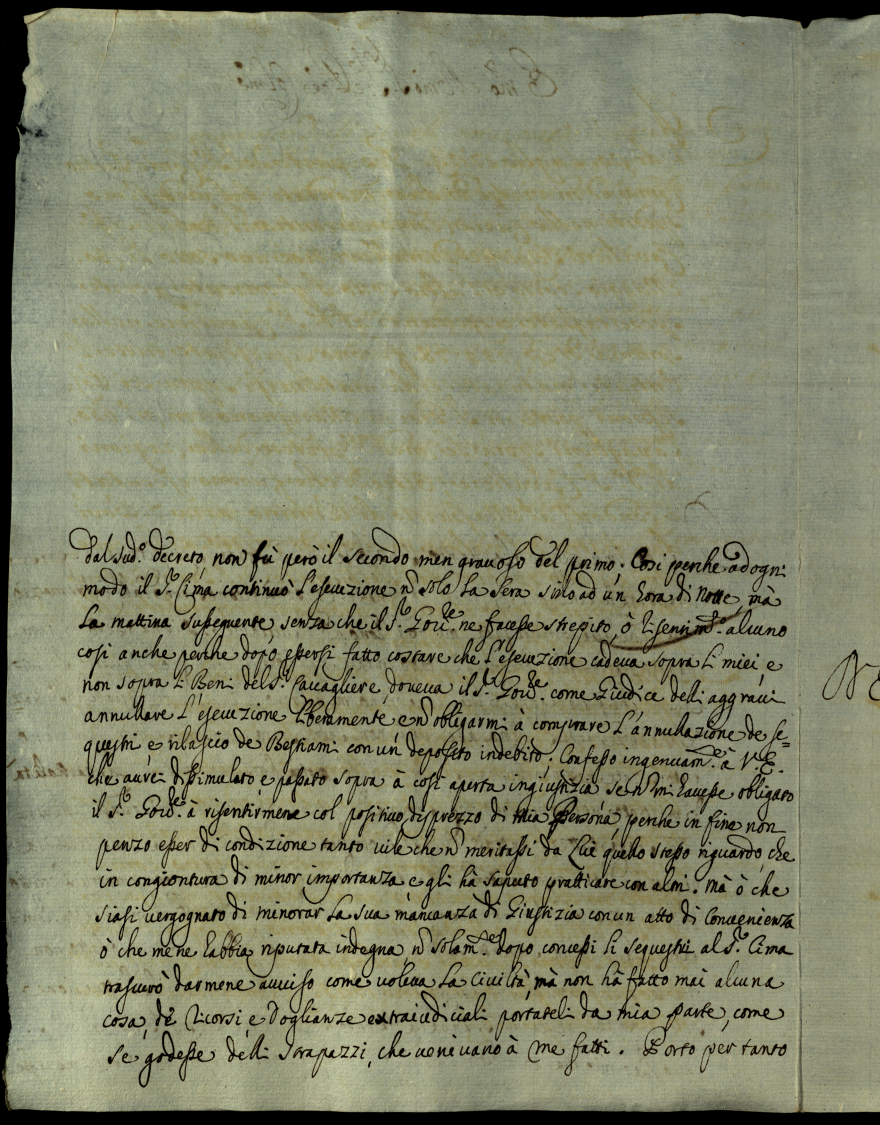 dal sud.º decreto, non fù però il secondo men grauoso del primo. Cosi perche ad ogni
modo il S.r Cima continuò l'esecuzione nõ solo la sera sino ad un' hora di notte, mà
la mattina susseguente, senza che il S.r Gou.re ne facesse strepito, ò risentim.to alcuno
cosi anche perche dopo essersi fatto costare che l'esecuzione cadeua sopra li miei, e
non sopra li Beni del S.r Caccagliere, doueua il S.r Gou.re come Giudice delli aggraui
annullare l'esecuzione liberamente, e nõ obligarmi à comprare l'annullazione de se=
questri e rilascio de Bestiami con un' deposito indebito. Confesso ingenuam.te à V.E.
che aurei dissimulato, e passato sopra à cosi aperta ingiustizia se nõ mi hauesse obligato
il S.r Gou.re à risentirmene col positiuo disprezzo di mia Persona, perche in fine non
penzo esser di condizione tanto uile che nõ meritassi da lui quello stesso riguardo, che
in congiontura di minor importanza egli hà saputo pratticare con altri. Mà ò che
siasi uergognato di minorar la sua mancanza di Giustizia con un atto di Conuenienza
ò che me ne habbia riputata indegna, nõ solam.te dopo concessi li sequestri al S.r Cima
trascurò darmene auuiso come uoleua la Ciuiltà, mà non hà fatto mai alcuna
cosa, de ricorsi, e doglianze extraiudiciali portateli da mia parte, come
se godesse delli strapazzi, che ueniuano à me fatti. Porto per tanto